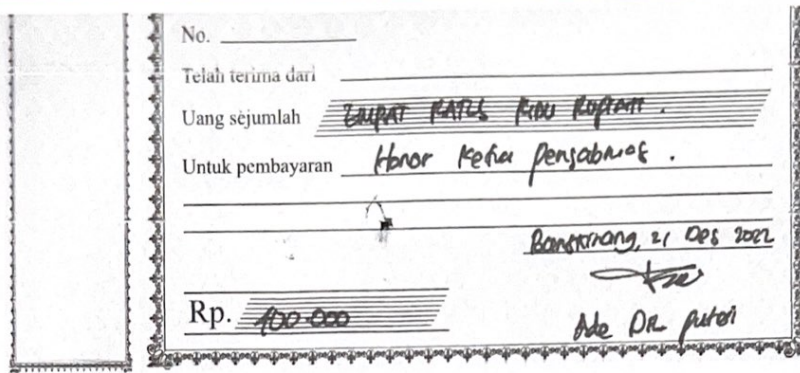 No.
Telah terima dari
Uang sejumlah EMPAT RATUS RIBU RUPIAH .
Untuk pembayaran Honor Ketua Pengabmas .
Bangkinang, 21 Des 2022
Rp. 400.000
Ade DR. Puteri